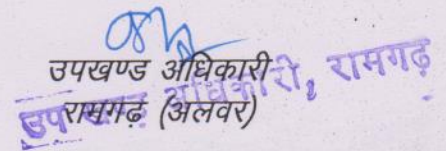 उपखण्ड अधिकारी
रामगढ़ (अलवर)
उप खण्ड अधिकारी, रामगढ़